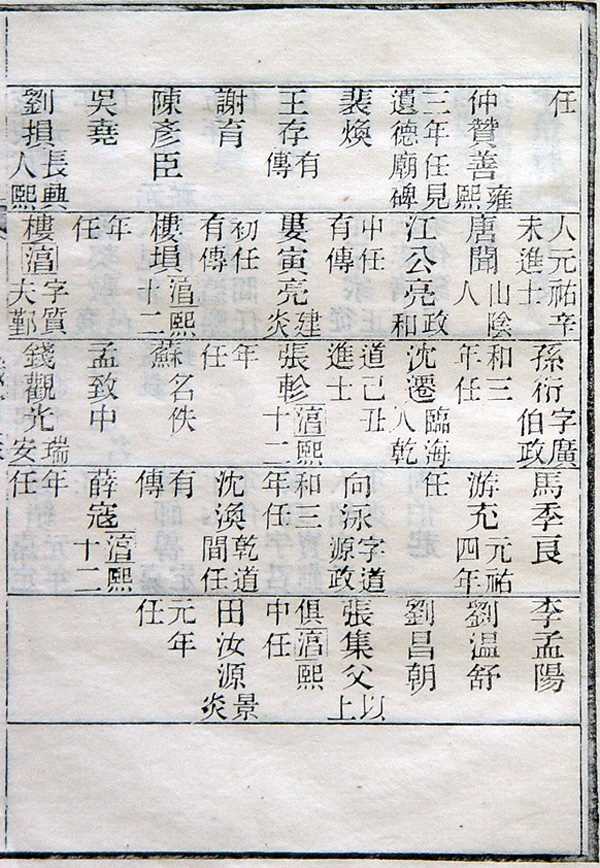 任
仲贊善雍熙
三年任見
遺德廟碑
裴煥
王存有傳
謝育
陳彥臣
吳堯
劉損長興人熙
人元祐辛
未進士
唐聞山陰人
江公亮政和
中任
有傳
婁寅亮建炎
初任
有傳
樓塤湻熙十二
年
任
樓湻字質夫鄞
孫衍字廣伯政
和三
年任
沈遷臨海人乾
道己丑
進士
張軫湻熙十二
年
任
蘇名佚
孟致中
錢觀光瑞安
馬季良
游充元祐四年
任
向泳字道源政
和三
年任
沈渙乾道間任
有
傳
薛寇湻熙十二
年
任
李孟陽
劉温舒
劉昌朝
張集父以上
俱湻熙
中任
田汝源景炎
元年
任